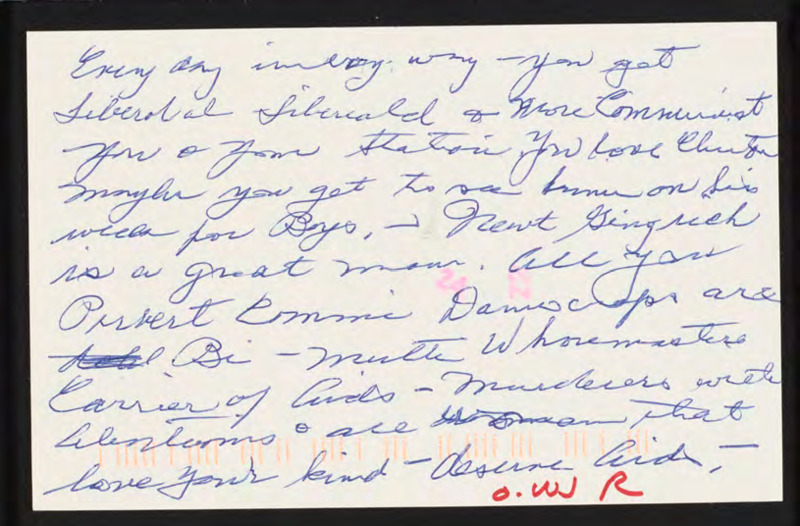 Every day in every way you get
Liberal Liberald & more Communist
you & your station You love Clinton
maybe you get to see him on his
week for Boys, - Newt Gingrich
is a great man. all you
Pervert Commie Damocraps are
Bi - multi Whoremasters
Carrier of Aids - murderers with
abortions & all woman that
love your kind - deserve Aids, -
O. W R
24